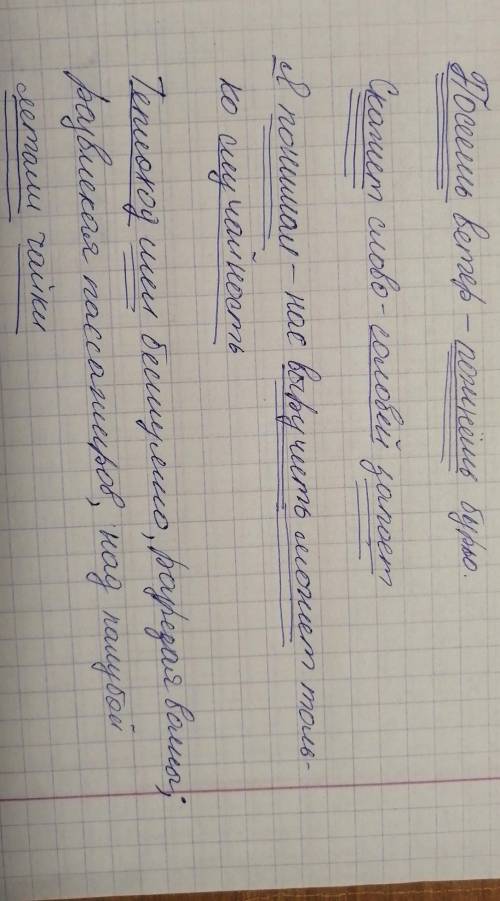 Посеешь ветер - пожнёшь бурю.
Скажет слово - соловей запоет
Я понимал - нас выручить может толь-
ко случайность
Теплоход шел бесшумно, разрезая волны;
развлекая пассажиров, над палубой
летали чайки